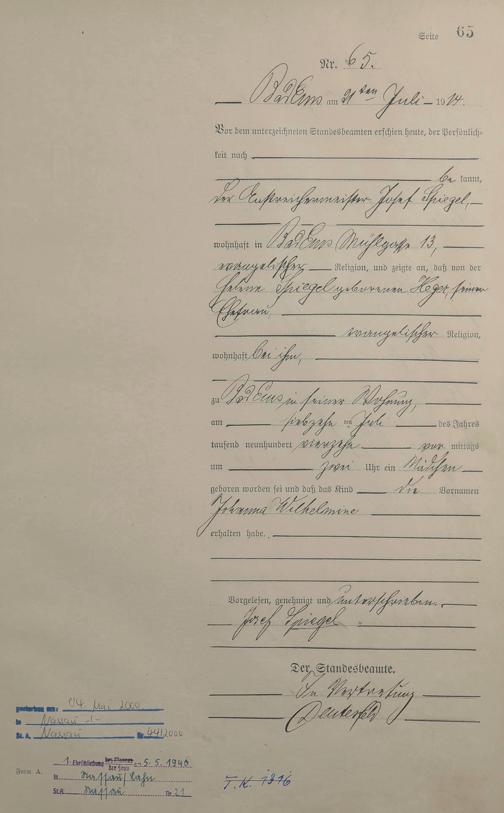 Seite 65
Nr. 65.
Bad Ems am 21ten Juli 1914.
Vor dem unterzeichneten Standesbeamten erschien heute, der Persönlich-
keit nach
be kannt,
der Anstreichermeister Josef Spiegel,
wohnhaft in Bad Ems Mühlgasse 13,
evangelischer Religion, und zeigte an, daß von der
Helene Spiegel geborenen Heger, seiner
Ehefrau,
evangelischer Religion,
wohnhaft bei ihm,
zu Bad Ems, in seiner Wohnung,
am siebzehn ten Juli des Jahres
tausend neunhundert vierzehn vor mittags
um zwei Uhr ein Mädchen
geboren worden sei und daß das Kind die Vornamen
Johanna Wilhelmine
erhalten habe.
Vorgelesen, genehmigt und unterschrieben.
Josef Spiegel
Der Standesbeamte.
In Vertretung
gestorben am: 04. Mai 2000
in Nassau
St. A. Nassau Nr 44/2000
Form A.
1. Eheschließung am 5.5.1940
in Nassau/Lahn
St.A. Nassau Nr 21
T.K. 1916